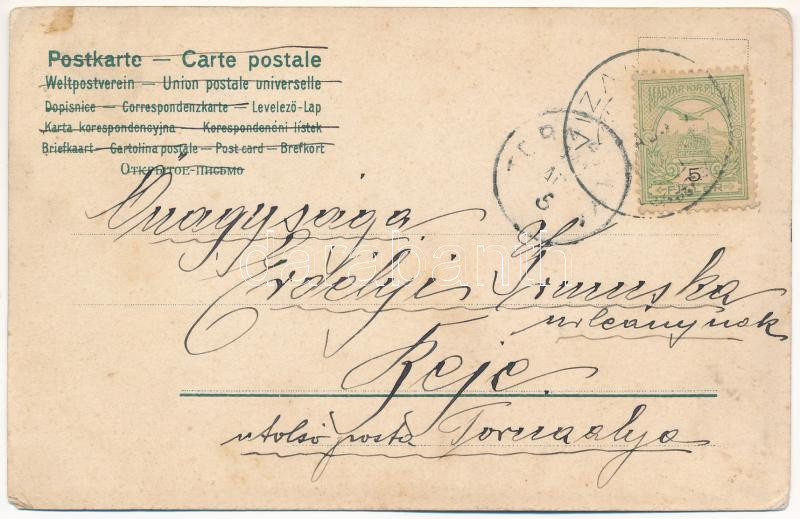 Postkarte — Carte postale
Weltpostverein — Union postale universelle
Dopisnice — Correspondenzkarte — Levelező-Lap
Karta korespondencyjna — Korespondenční lístek
Briefkaart — Cartolina postale — Post card — Brefkort
Открытое-письмо
MAGYAR KIR. POSTA
5
Őnagysága
Erdélyi Irmuska
urleánynak
Beje.
utolsó posta Tornaalja
darabanth